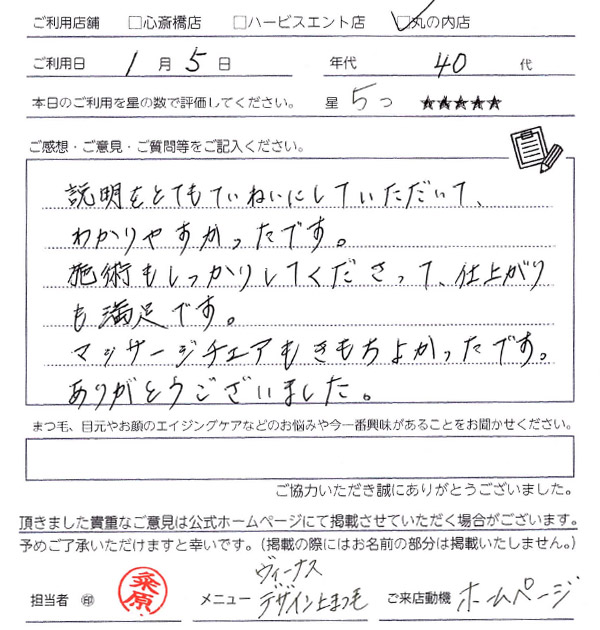 ご利用店舗 □心斎橋店 □ハービスエント店 ☑丸の内店
ご利用日 1月5日 年代 40代
本日のご利用を星の数で評価してください。 星5つ ★★★★★
ご感想・ご意見・ご質問等をご記入ください。
説明をとてもていねいにしていただいて、
わかりやすかったです。
施術もしっかりしてくださって、仕上がり
も満足です。
マッサージチェアもきもちよかったです。
ありがとうございました。
まつ毛、目元やお顔のエイジングケアなどのお悩みや今一番興味があることをお聞かせください。
ご協力いただき誠にありがとうございました。
頂きました貴重なご意見は公式ホームページにて掲載させていただく場合がございます。
予めご了承いただけますと幸いです。(掲載の際にはお名前の部分は掲載いたしません。)
担当者 ㊞ 桑原 メニュー ヴィーナス デザイン上まつ毛 ご来店動機 ホームページ